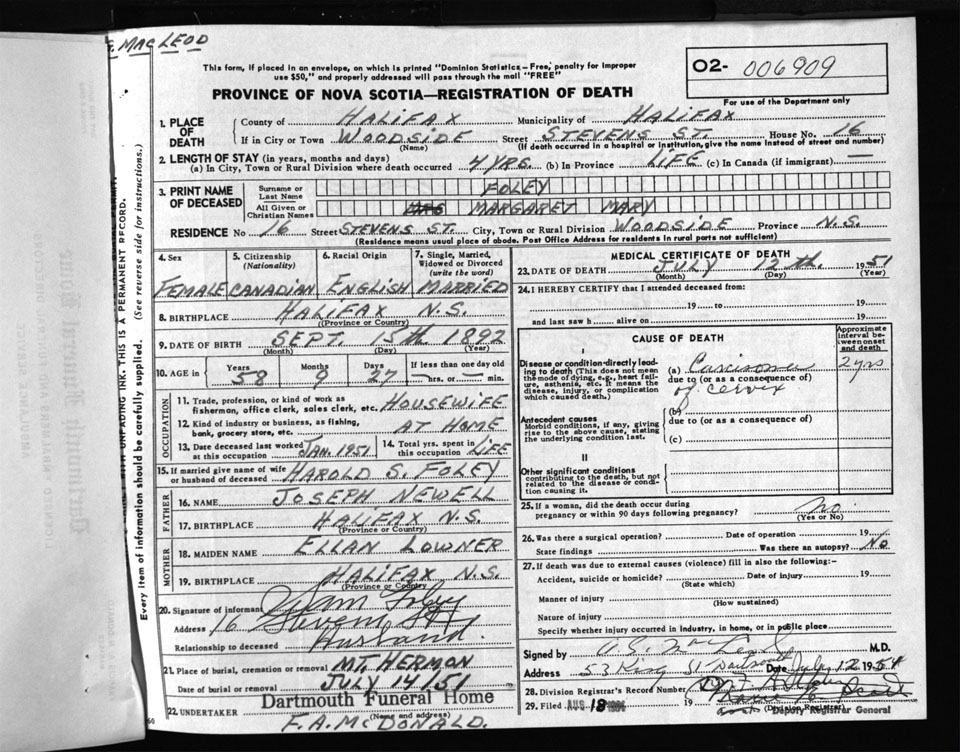 F. MACLEOD
This form, if placed in an envelope, on which is printed "Dominion Statistics - Free, penalty for improper
use $50," and properly addressed will pass through the mail "FREE"
PROVINCE OF NOVA SCOTIA—REGISTRATION OF DEATH
O2- 006909
For use of the Department only
1. PLACE OF DEATH
County of HALIFAX Municipality of HALIFAX
If in City or Town WOODSIDE Street STEVENS ST. House No. 16
(Name) (If death occurred in a hospital or institution, give the name instead of street and number)
2. LENGTH OF STAY (in years, months and days)
(a) In City, Town or Rural Division where death occurred 4 YRS. (b) In Province LIFE (c) In Canada (if immigrant) —
3. PRINT NAME OF DECEASED
Surname or Last Name FOLEY
All Given or Christian Names MRS MARGARET MARY
RESIDENCE No 16 Street STEVENS ST. City, Town or Rural Division WOODSIDE Province N.S.
(Residence means usual place of abode. Post Office Address for residents in rural parts not sufficient)
4. Sex FEMALE
5. Citizenship (Nationality) CANADIAN
6. Racial Origin ENGLISH
7. Single, Married, Widowed or Divorced (write the word) MARRIED
8. BIRTHPLACE HALIFAX N.S.
(Province or Country)
9. DATE OF BIRTH SEPT. 15th 1892
(Month) (Day) (Year)
10. AGE in Years 58 Months 9 Days 27 If less than one day old — hrs. or — min.
OCCUPATION
11. Trade, profession, or kind of work as fisherman, office clerk, sales clerk, etc. HOUSEWIFE
12. Kind of industry or business, as fishing, bank, grocery store, etc. AT HOME
13. Date deceased last worked at this occupation JAN. 1951
14. Total yrs. spent in this occupation LIFE
15. If married give name of wife or husband of deceased HAROLD S. FOLEY
FATHER
16. NAME JOSEPH NEWELL
17. BIRTHPLACE HALIFAX N.S.
(Province or Country)
MOTHER
18. MAIDEN NAME ELLAN LOWNER
19. BIRTHPLACE HALIFAX N.S.
(Province or Country)
20. Signature of informant Foley
Address 16 Stevens St
Relationship to deceased Husband.
21. Place of burial, cremation or removal MT. HERMON
Date of burial or removal JULY 14/51
Dartmouth Funeral Home
22. UNDERTAKER (Name and address)
F. A. McDONALD.
MEDICAL CERTIFICATE OF DEATH
23. DATE OF DEATH JULY 12th. 1951
(Month) (Day) (Year)
24. I HEREBY CERTIFY that I attended deceased from:
19 to 19
and last saw h alive on 19
CAUSE OF DEATH
Approximate interval between onset and death
I
Disease or condition directly leading to death (This does not mean the mode of dying, e.g., heart failure, asthenia, etc. It means the disease, injury, or complication which caused death.)
(a) Carcinoma 2 yrs
due to (or as a consequence of)
of Cervix
Antecedent causes
Morbid conditions, if any, giving rise to the above cause, stating the underlying condition last.
(b)
due to (or as a consequence of)
(c)
II
Other significant conditions contributing to the death, but not related to the disease or condition causing it.
25. If a woman, did the death occur during pregnancy or within 90 days following pregnancy? No
(Yes or No)
26. Was there a surgical operation? Date of operation 19
State findings Was there an autopsy? No
27. If death was due to external causes (violence) fill in also the following:-
Accident, suicide or homicide? Date of injury 19
(State which)
Manner of injury
(How sustained)
Nature of injury
Specify whether injury occurred in industry, in home, or in public place
Signed by M.D.
Address 53 King St Dartmouth Date July 12 195
28. Division Registrar's Record Number
29. Filed AUG 18 19
(Division Registrar)
Deputy Registrar General
Every item of information should be carefully supplied. (See reverse side for instructions.)
UNFADING INK. THIS IS A PERMANENT RECORD.
Dartmouth Funeral Home